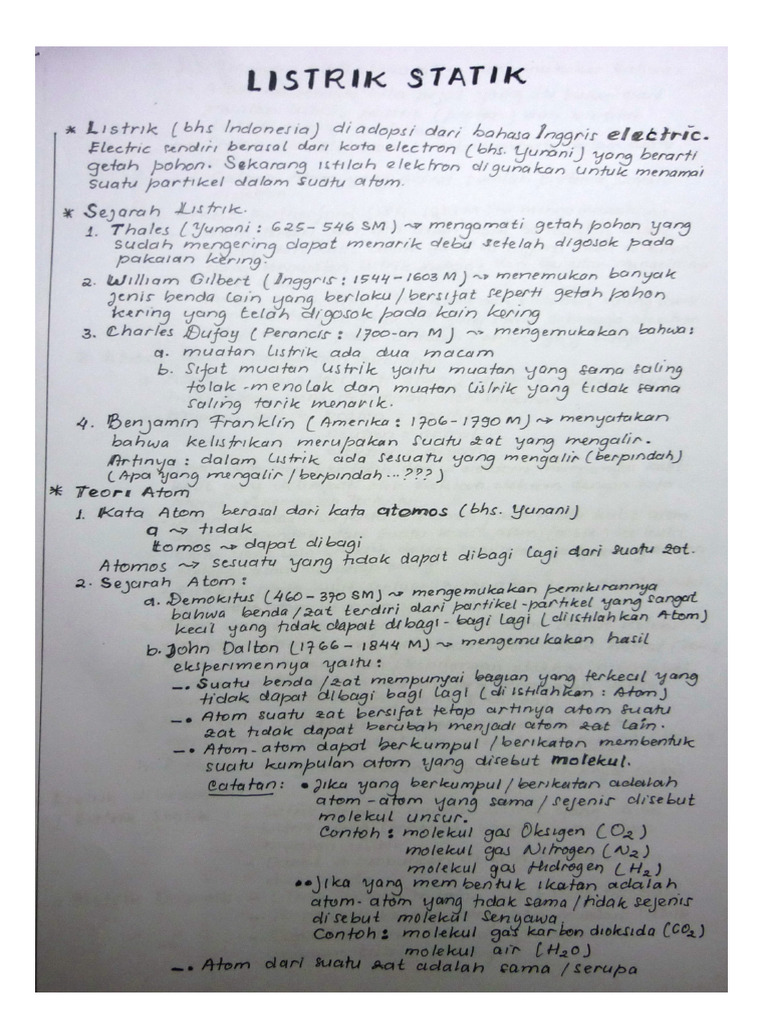 LISTRIK STATIK
* Listrik (bhs Indonesia) diadopsi dari bahasa Inggris electric.
Electric sendiri berasal dari kata electron (bhs. Yunani) yang berarti
getah pohon. Sekarang istilah elektron digunakan untuk menamai
suatu partikel dalam suatu atom.
* Sejarah Listrik.
1. Thales (Yunani : 625 - 546 SM) ⤳ mengamati getah pohon yang
sudah mengering dapat menarik debu setelah digosok pada
pakaian kering.
2. William Gilbert (Inggris : 1544 - 1603 M) ⤳ menemukan banyak
jenis benda lain yang berlaku / bersifat seperti getah pohon
kering yang telah digosok pada kain kering
3. Charles Dufay (Perancis : 1700-an M) ⤳ mengemukakan bahwa:
a. muatan listrik ada dua macam
b. Sifat muatan listrik yaitu muatan yang sama saling
tolak-menolak dan muatan listrik yang tidak sama
saling tarik menarik.
4. Benjamin Franklin (Amerika : 1706 - 1790 M) ⤳ menyatakan
bahwa kelistrikan merupakan suatu zat yang mengalir.
Artinya : dalam listrik ada sesuatu yang mengalir (berpindah)
(Apa yang mengalir / berpindah ... ???)
* Teori Atom
1. Kata Atom berasal dari kata atomos (bhs. Yunani)
a ⤳ tidak
tomos ⤳ dapat dibagi
Atomos ⤳ sesuatu yang tidak dapat dibagi lagi dari suatu zat.
2. Sejarah Atom :
a. Demokitus (460 - 370 SM) ⤳ mengemukakan pemikirannya
bahwa benda / zat terdiri dari partikel-partikel yang sangat
kecil yang tidak dapat dibagi-bagi lagi (diistilahkan Atom)
b. John Dalton (1766 - 1844 M) ⤳ mengemukakan hasil
eksperimennya yaitu :
–• Suatu benda / zat mempunyai bagian yang terkecil yang
tidak dapat dibagi bagi lagi (diistilahkan : Atom)
–• Atom suatu zat bersifat tetap artinya atom suatu
zat tidak dapat berubah menjadi atom zat lain.
–• Atom-atom dapat berkumpul / berikatan membentuk
suatu kumpulan atom yang disebut molekul.
Catatan : • Jika yang berkumpul / berikatan adalah
atom-atom yang sama / sejenis disebut
molekul unsur.
Contoh : molekul gas Oksigen (O₂)
molekul gas Nitrogen (N₂)
molekul gas Hidrogen (H₂)
•• Jika yang membentuk ikatan adalah
atom-atom yang tidak sama / tidak sejenis
disebut molekul Senyawa
Contoh : molekul gas karbon dioksida (CO₂)
molekul air (H₂O)
–• Atom dari suatu zat adalah sama / serupa